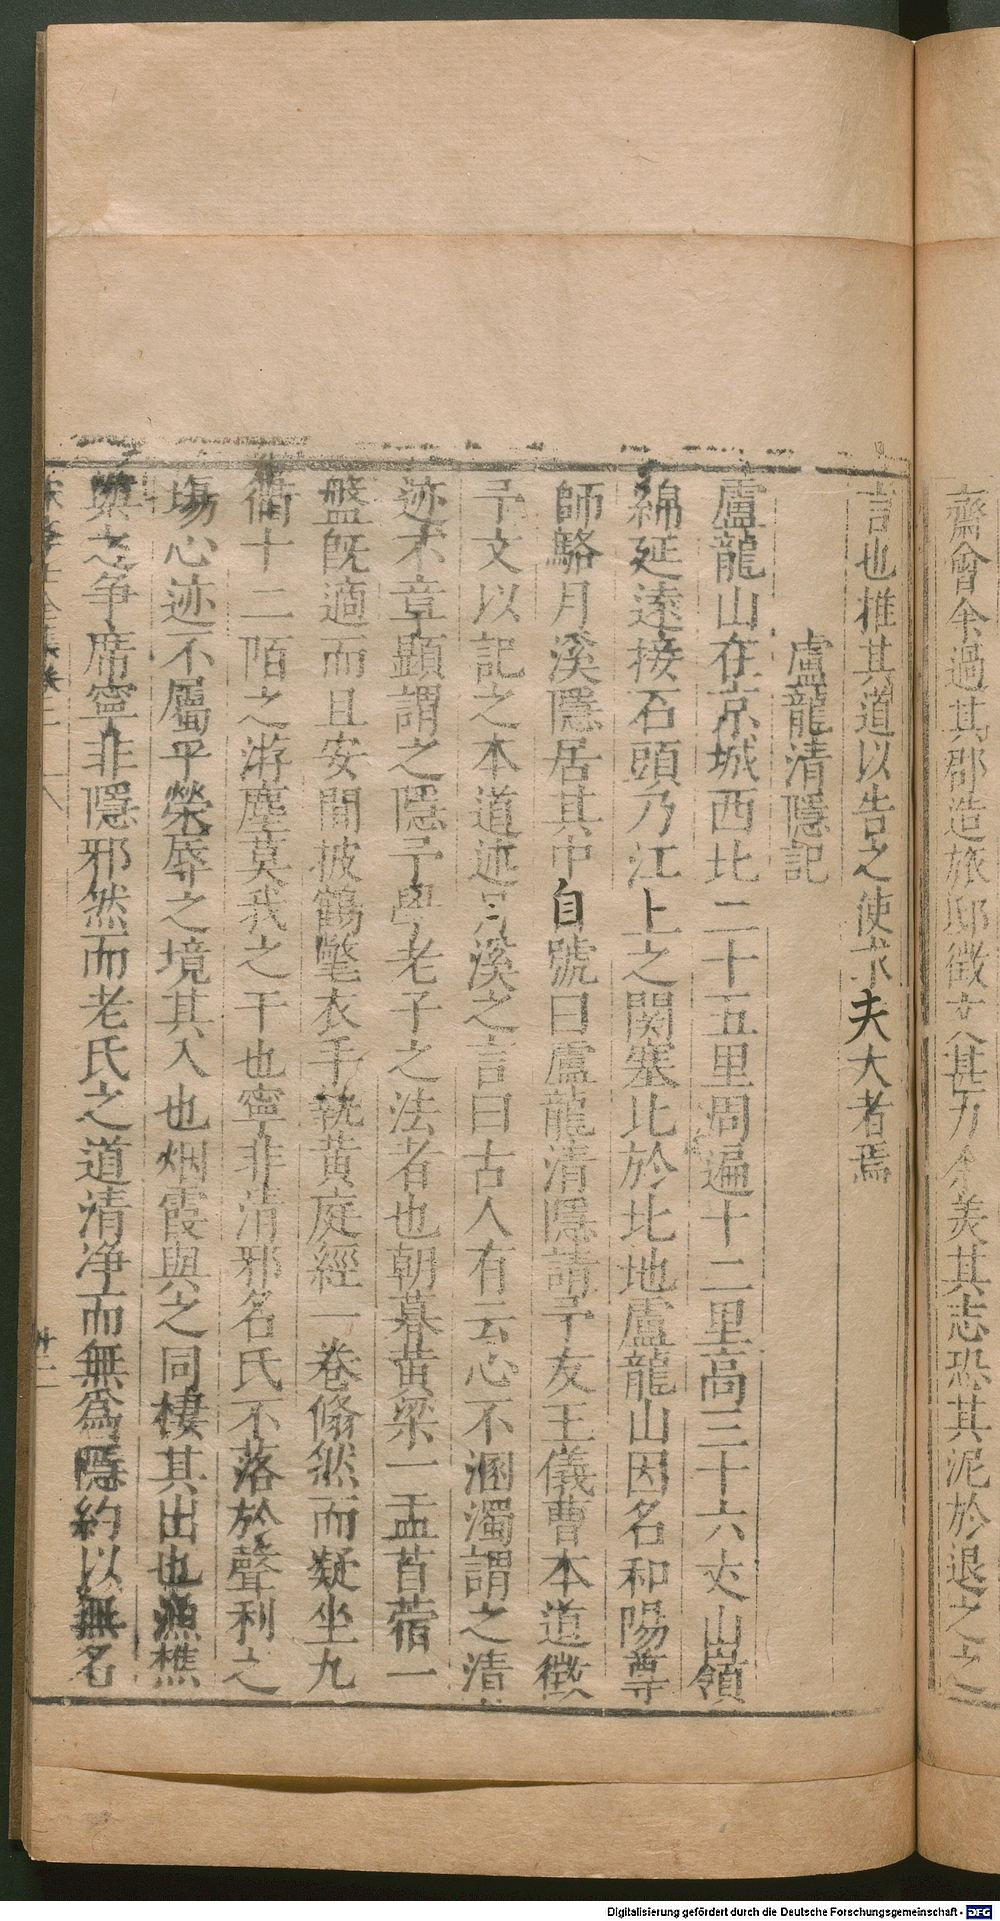 齋會余過其郡造旅邸徵文甚力余美其志恐其泥於退之之
言也推其道以告之使求夫大者焉
盧龍清隱記
盧龍山在京城西北二十五里周遍十二里高三十六丈山嶺
綿延遠接石頭乃江上之関塞比於北地盧龍山因名和陽尊
師駱月溪隱居其中自號曰盧龍清隱請予友王儀曹本道徵
予文以記之本道述月溪之言曰古人有云心不溷濁謂之清
迹不章顯謂之隱予學老子之法者也朝暮黄梁一盂苜蓿一
盤旣適而且安間披鶴氅衣手執黄庭經一卷翛然而疑坐九
衢十二陌之游塵莫我之干也寧非清邪名氏不落於聲利之
場心迹不屬乎榮辱之境其入也烟霞與之同棲其出也漁樵
與之争席寧非隱邪然而老氏之道清净而無為隱約以無名
Digitalisierung gefördert durch die Deutsche Forschungsgemeinschaft - DFG